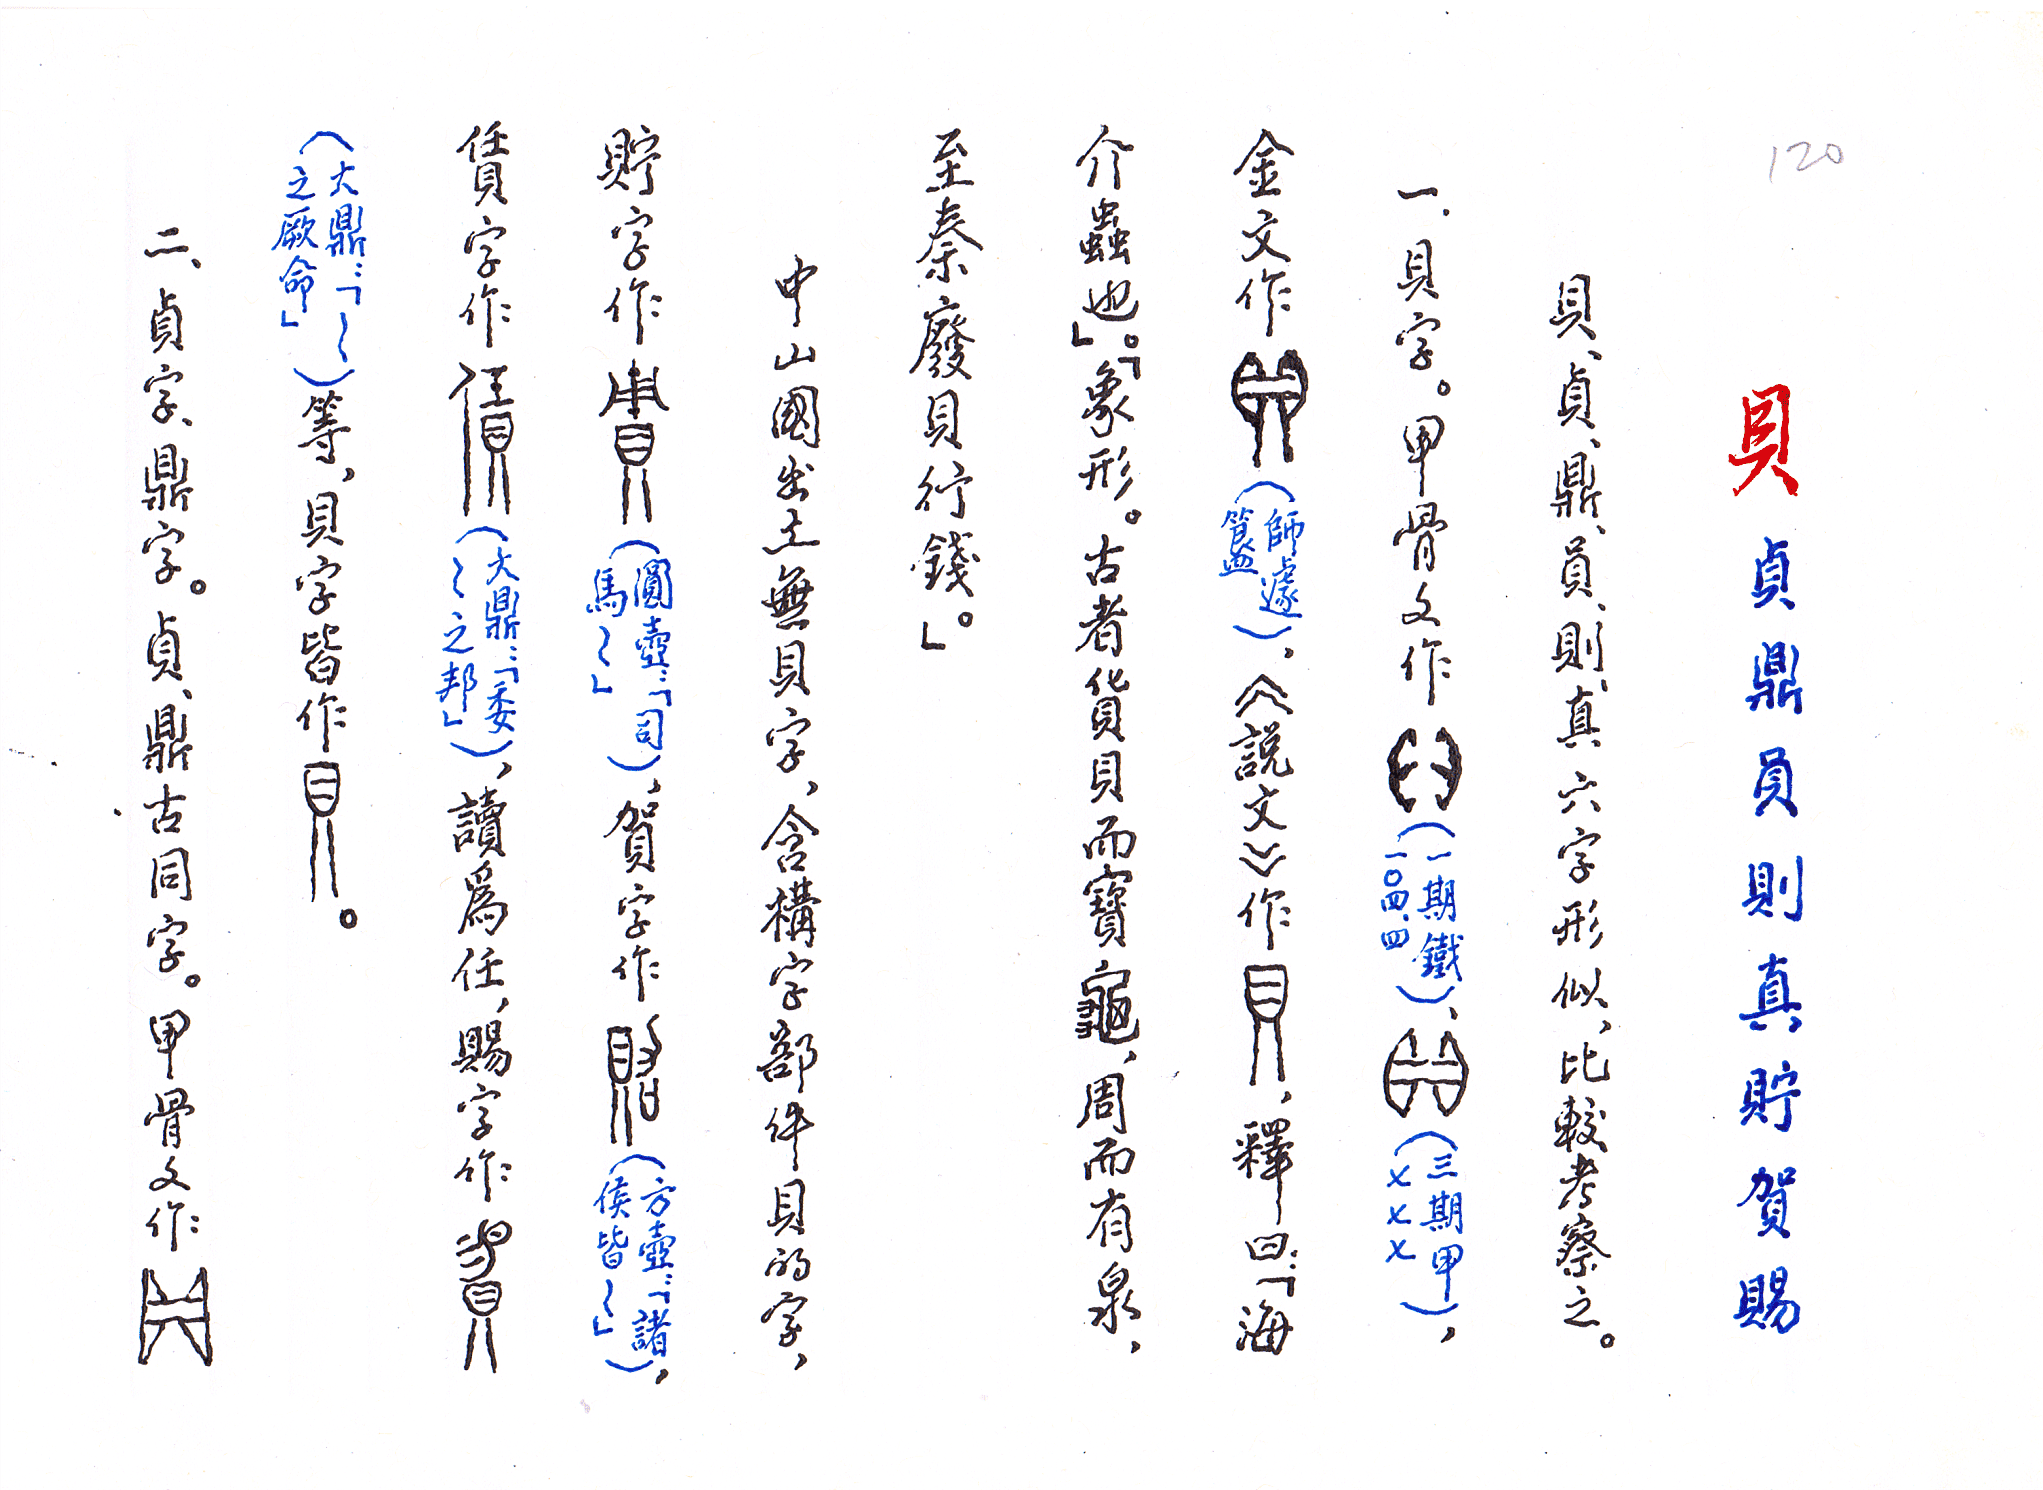 120
貝貞鼎員則真貯賀賜
貝、貞、鼎、員、則、真六字形似，比較考察之。
一、貝字。甲骨文作（一期鐵一〇四.四）、（三期甲×××），
金文作（師遽簋），《説文》作，釋曰：「海
介蟲也」。「象形。古者貨貝而寶龜，周而有泉，
至秦廢貝行錢。」
中山國出土無貝字，含構字部件貝的字，
貯字作（圓壺：「司馬～」），賀字作（方壺：「諸侯皆～」），
賃字作（大鼎：「委～之邦」），讀爲任，賜字作
（大鼎：「～之厥命」）等，貝字皆作。
二、貞字、鼎字。貞、鼎古同字。甲骨文作